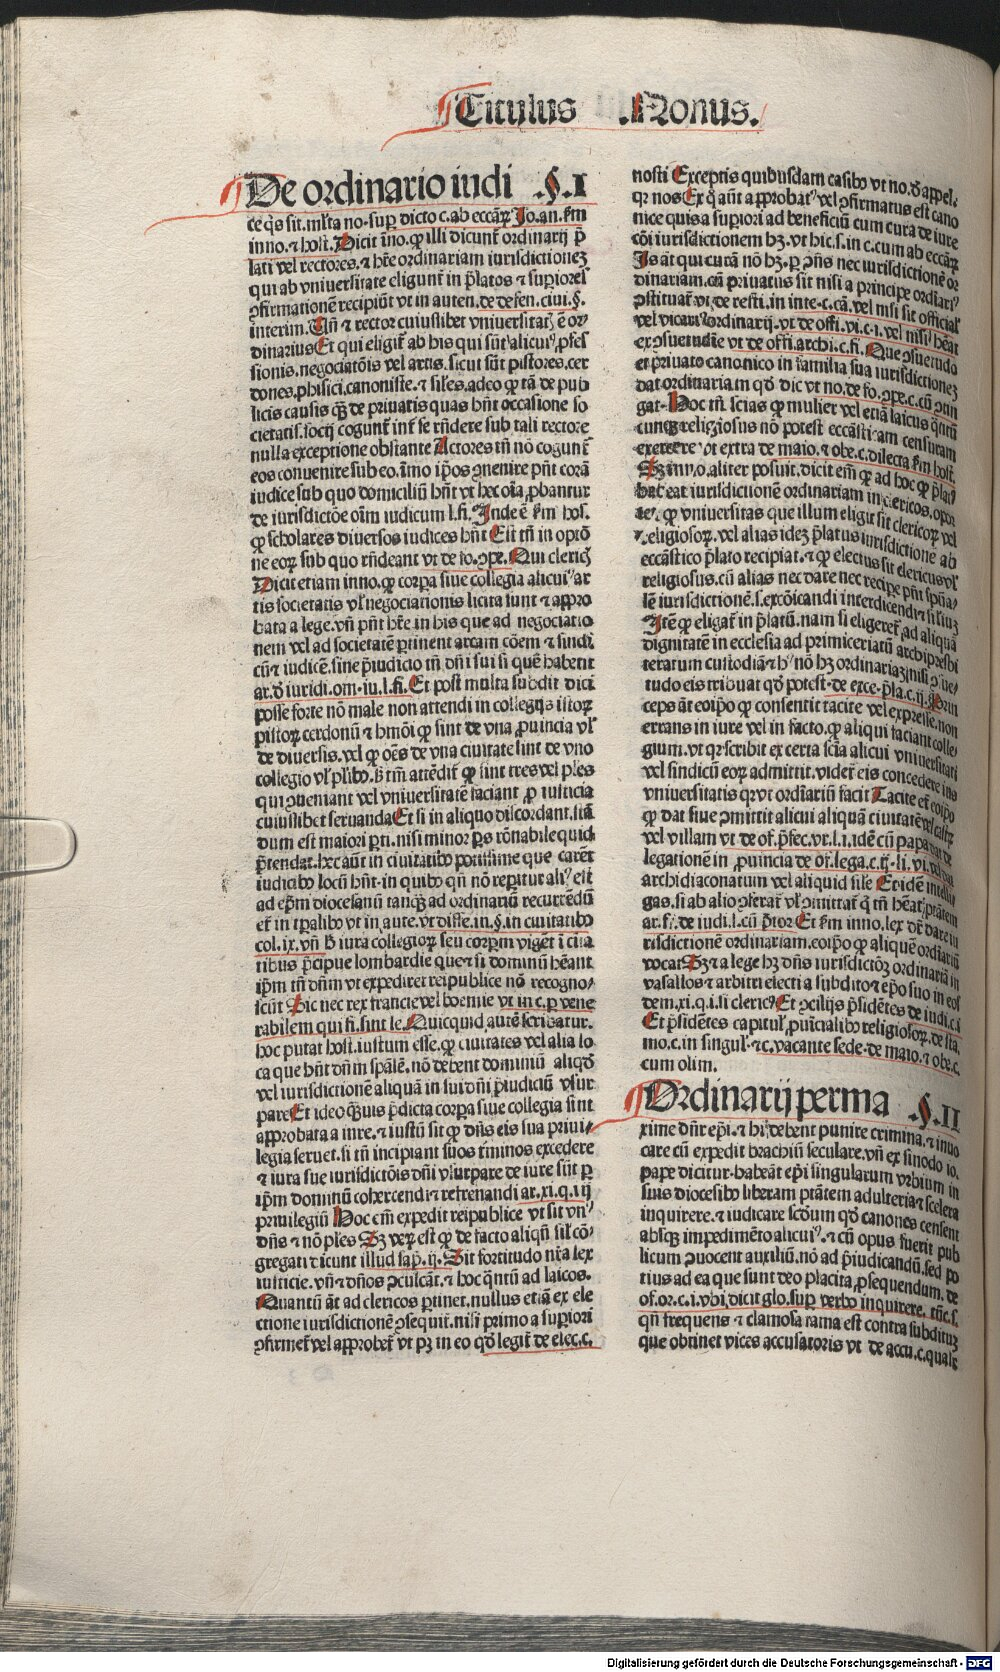 Titulus Nonus.
De ordinario iudi §.I
ce q̄s sit. mlta no. sup̲ dicto c. ab eccaꝝ Jo. an. s̄m
inno. ⁊ host̄. Dicit īno. ꝙ illi dicunt̄ ordinarij p̄
lati vel rectores. ⁊ hr̄e ordinariam iurisdictionez
qui ab vniuersitate eligunt̄ in p̄latos ⁊ suꝑiores
ꝯfirmationē recipiūt vt in auten. de defen. ciui. §.
interim. Qn̄ ⁊ rector cuiuslibet vniuersitat̄ ē or
dinarius Et qui eligit̄ ab his qui sūt alicuiꝰ ꝓfes
sionis. negociatōis vel artis. sicut sūt pistores. cer
dones. phisici. canoniste. ⁊ sil̄es. adeo ꝙ tā de pub
licis causis qꝫ de priuatis quas hn̄t occasione so
cietatis. socij cogunt̄ int̄ se rn̄dere sub tali rectore
nulla exceptione obstante Actores tn̄ nō cogunt̄
eos conuenire sub eo. īmo ip̄os ꝯuenire pn̄t corā
iudice sub quo domiciliū hn̄t vt hec oīa ꝓbantur
de iurisdictōe oīm iudicum l. fi. Inde ē s̄m hos.
ꝙ scholares diuersos iudices hn̄t Est tn̄ in optō
ne eoꝝ sub quo rn̄deant vt de fo. ꝯpe. Qui clericꝰ
Dicit etiam inno. ꝙ corpa siue collegia alicuiꝰ ar
tis societatis vl̄ negociationis licita sunt ⁊ appro
bata a lege. vn̄ pn̄t hr̄e in his que ad negociatio
nem vel ad societatē ꝑtinent arcam cōem ⁊ sindi
cū ⁊ iudicē. sine p̄iudicio tn̄ dn̄i sui si quē habent
ar. ꝟ iuridi. om. iu. l. fi. Et post multa subdit dici
posse forte nō male non attendi in collegijs istoꝝ
pistoꝝ cerdonū ⁊ hmōi ꝙ sint de vna ꝓuincia vl̄
de diuersis. vel ꝙ oēs de vna ciuitate sint de vno
collegio vl̄ plibꝰ. s̄ tm̄ attēdit̄ ꝙ sint tres vel ples
qui ꝯueniant vel vniuersitatē faciant ꝓ iusticia
cuiuslibet seruanda Et si in aliquo discordant. stā
dum est maiori ꝑti. nisi minor ꝑs rōnabile quid
p̄tendat. hec aūt in ciuitatibꝰ potissime que carēt
iudicibꝰ locū hn̄t. in quibꝰ qn̄ nō reꝑitur aliꝰ est
ad ep̄m diocesanū tanqꝫ ad ordinariū recurrēdū
et̄ in tp̄alibꝰ vt in aute. vt diffe. iu. §. in ciuitatibꝰ
col. ix. vn̄ ꝟ iura collegioꝝ seu corpm̄ vigēt ī ciui
tibus p̄cipue lombardie que ⁊ si dominū hēant
ip̄m tn̄ dn̄m vt expediret reipublice nō recogno/
scūt Sic nec rex francie vel boemie vt in c. ꝑ vene
rabilem qui fi. sint le. Quicquid autē scribatur.
hoc putat host̄. iustum esse. ꝙ ciuitates vel alia lo
ca que hn̄t dn̄m sp̄alē. nō debent dominiū aliqd̄
vel iurisdictionē aliquā in sui dn̄i p̄iudiciū vsur
pare Et ideo qꝫuis p̄dicta corpa siue collegia sint
approbata a iure. ⁊ iustū sit ꝙ dn̄s eis sua priui/
legia seruet. si tn̄ incipiant suos t̄minos excedere
⁊ iura sue iurisdictōis dn̄i vsurpare de iure sūt ꝑ
ip̄m dominū cohercendi ⁊ refrenandi ar. xi. q. iij
priuilegiū Hoc em̄ expedit reipublice vt sit vnꝰ
dn̄s ⁊ nō ples Sꝫ veꝝ est ꝙ de facto aliqn̄ sil̄ cō/
gregati dicunt illud sap̄. ij. Sit fortitudo nr̄a lex
iusticie. vn̄ ⁊ dn̄os ꝯculcāt. ⁊ hoc qn̄tū ad laicos.
Quantū āt ad clericos ꝑtinet. nullus etiā ex ele
ctione iurisdictionē ꝯsequit̄. nisi primo a suꝑiori
ꝯfirmet̄ vel approbet̄ vt pꝫ in eo qd̄ legit̄ de elec. c.
nosti Exceptis quibusdam casibꝰ vt no. ꝟ appel.
qr nos Ex q̄ aūt approbatꝰ vel ꝯfirmatus est cano
nice quis a suꝑiori ad beneficiū cum cura de iure
cōi iurisdictionem hꝫ. vt hic. s. in c. cum ab eccaꝝ
Is āt qui curā nō hꝫ. ꝑ ꝯn̄s nec iurisdictionē or
dinariam. cū priuatus sit nisi a principe ordīariꝰ
ꝯstituat̄. vt de resti. in inte. c. cā. vel nisi sit official̄
vel vicariꝰ ordinarij. vt de offi. vi. c. i. vel nisi hēat
ex ꝯsuetudīe vt de offi. archi. c. fi. Que ꝯsuetudo
et priuato canonico in familia sua iurisdictionez
dat ordinariam qd̄ dic vt no. de fo. ꝯpe. c. cū ꝯtin
gat. Hoc tn̄ scias ꝙ mulier vel etiā laicus qn̄tū
cunqꝫ religiosus nō potest eccāsticam censuram
exercere vt extra de maio. ⁊ obe. c. dilecta s̄m host̄.
Sꝫ inno. aliter posuit. dicit em̄ ꝙ ad hoc ꝙ p̄latꝰ
habeat iurisdictionē ordinariam in clericos. opor
tet. ꝙ vniuersitas que illum eligit sit clericoꝝ vel
religiosoꝝ. vel alias idez p̄latus iurisdictione ab
eccāstico p̄lato recipiat. ⁊ ꝙ electus sit clericus vl̄
religiosus. cū alias nec dare nec recipe pn̄t sp̄ua/
lē iurisdictionē. s. excōicandi interdicendi ⁊ sisiuz
Itē ꝙ eligat̄ in p̄latū. nam si eligeret̄ ad aliquā
dignitatē in ecclesia ad primiceriatū archip̄esbi
teratum custodiā ⁊ hꝰ nō hꝫ ordinariaz nisi ꝯsue/
tudo eis tribuat qd̄ potest. de exce. p̄la. c. ij. Prin
ceps āt eoip̄o ꝙ consentit tacite vel expresse. non
errans in iure vel in facto. ꝙ aliqui faciant colle
gium. vt qr scribit ex certa scīa alicui vniuersitati
vel sindicū eoꝝ admittit. videt̄ eis concedere ius
vniuersitatis qr vt ordīariū facit Tacite et̄ eoip̄o
ꝙ dat siue ꝯmittit alicui aliquā ciuitatē vel castꝝ
vel villam vt de of. p̄fec. vr. l. i. idē cū papa dat de
legationē in ꝓuincia de of. lega. c. ij. li. vi. vel dat
archidiaconatum vel aliquid sil̄e Et idē intelliꝰ
gas. si ab alio ꝯferat̄ vl̄ ꝯmittat̄ q̄ tn̄ hēat p̄tātem
ar. ff. de iudi. l. cū p̄tor Et s̄m inno. lex dr̄ dare iu
risdictionē ordinariam. eoip̄o ꝙ aliquē ordīariū
vocat Sꝫ ⁊ a lege hꝫ dn̄s iurisdictōꝫ ordinariā in
vasallos ⁊ arbitri electi a subdito ⁊ ep̄o suo in eos
dem. xi. q. i. si clericꝰ Et ꝯcilijs p̄sidētes de iudi. c. i
Et p̄sidētes capitul̄ ꝓuīcialibꝰ religiosoꝝ. de sta.
mo. c. in singul̄. ⁊ c. vacante sede. de maio. ⁊ obe. c.
cum olim.
Ordinarij perma §.II
xime dn̄r ep̄i. ⁊ hi debent punire crimina. ⁊ inuo
care cū expedit brachiū seculare. vn̄ ex sinodo io.
pape dicitur. habeāt ep̄i singularum vrbium in
suis diocesibꝰ liberam ptātem adulteria ⁊ scelera
inquirere. ⁊ iudicare scd̄um qd̄ canones censent
absqꝫ impedimēto alicuiꝰ. ⁊ cū opus fuerit pub
licum ꝯuocent auxiliū. nō ad p̄iudicandū. sed po
tius ad ea que sunt deo placita. ꝓsequendum. de
of. or. c. i. vbi dicit glo. sup̲ verbo inquirere. tūc. s.
qn̄ frequens ⁊ clamosa fama est contra subdituꝫ
que obtinet vices accusatoris vt de accu. c. qual̄r
Digitalisierung gefördert durch die Deutsche Forschungsgemeinschaft - DFG